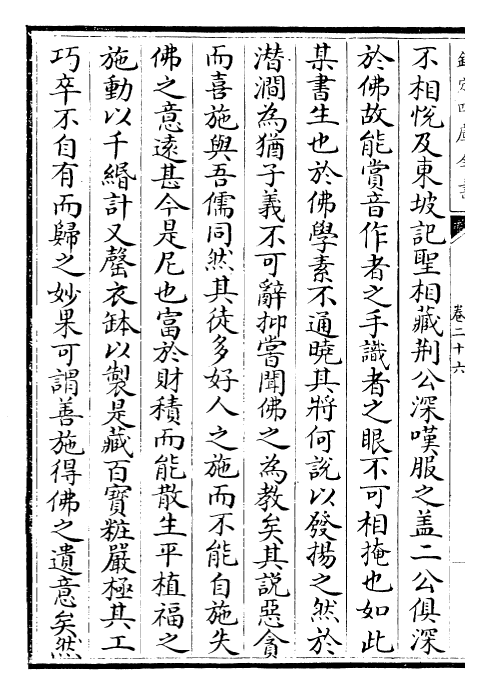 欽定四庫全書
卷二十六
不相悅及東坡記聖相藏荆公深嘆服之盖二公俱深
於佛故能賞音作者之手識者之眼不可相掩也如此
某書生也於佛學素不通曉其將何說以發揚之然於
潜澗為猶子義不可辭抑嘗聞佛之為教矣其說惡貪
而喜施與吾儒同然其徒多好人之施而不能自施失
佛之意逺甚今是尼也富於財積而能散生平植福之
施動以千緡計又罄衣鉢以製是藏百寳粧嚴極其工
巧卒不自有而歸之妙果可謂善施得佛之遺意矣然